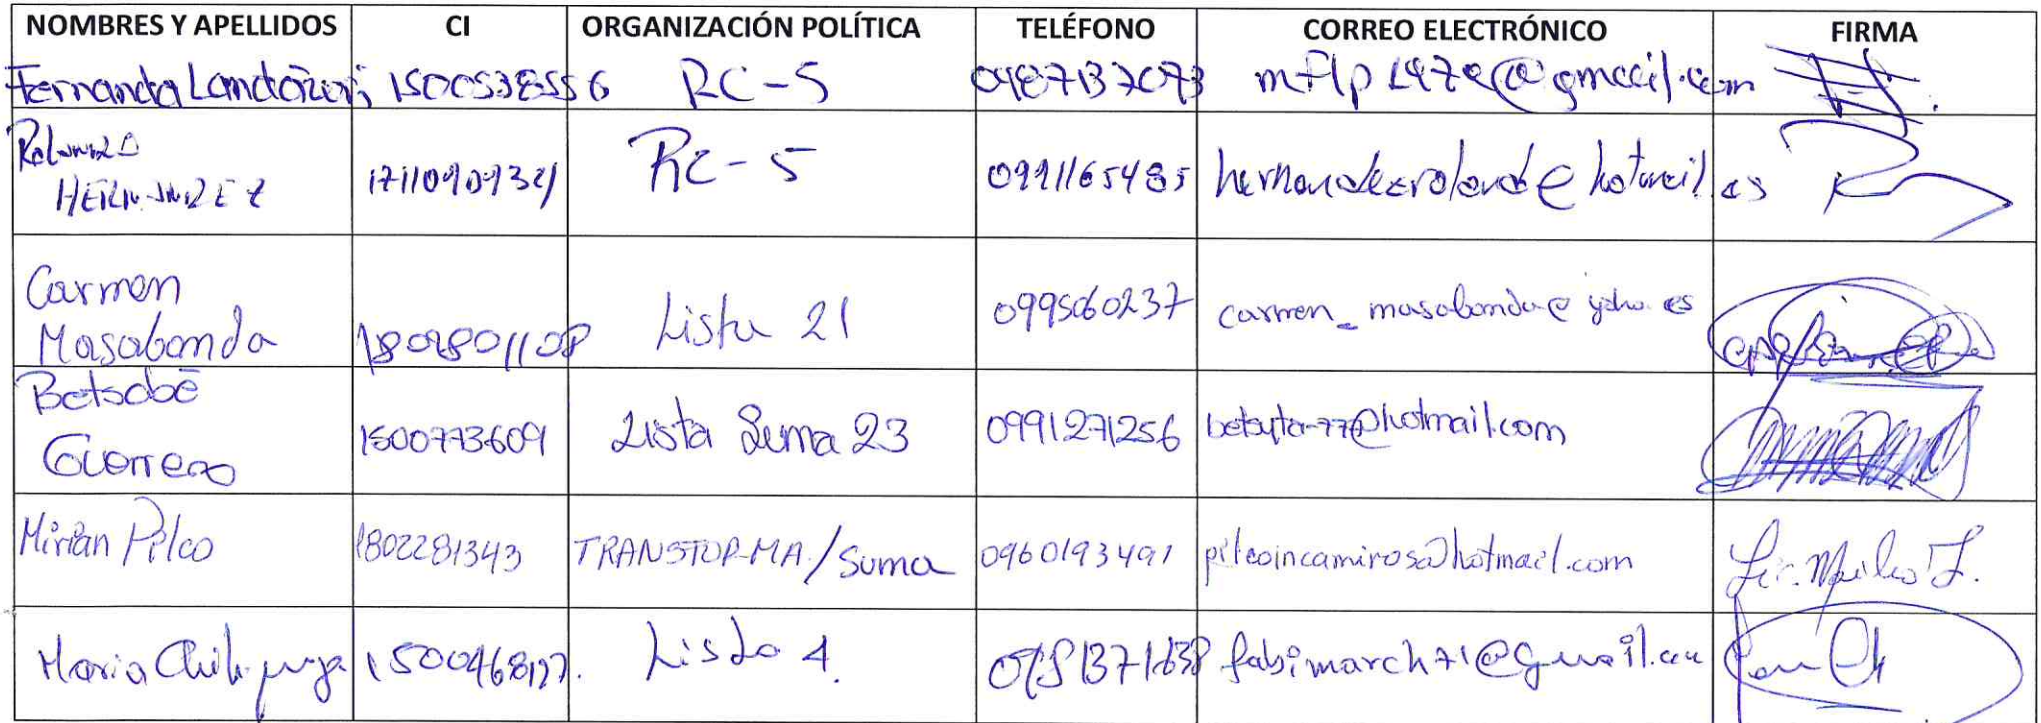 NOMBRES Y APELLIDOS CI ORGANIZACIÓN POLÍTICA TELÉFONO CORREO ELECTRÓNICO FIRMA
Fernanda Landázuri 1500538556 RC-5 0987137093
Rolando
HERNANDEZ RC-5 0991165485 hernandezrolando@hotmail.es
Carmen
Masabanda 1803801108 Lista 21 0995060237 carmen_masabanda@yahoo.es
Betsabé
Guerrero 1500773609 Lista Suma 23 0991271256 betsyta-77@hotmail.com
Mirian Pilco 1802281343 TRANSTOP-MA./Suma 0960193491 pilcoincamirosa@hotmail.com
Maria Chiliquinga Lista 4. fabimarch71@gmail.com